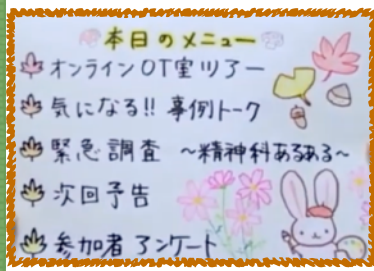 本日のメニュー
オンラインOT室ツアー
気になる!! 事例トーク
緊急調査 ～精神科あるある～
次回予告
参加者アンケート